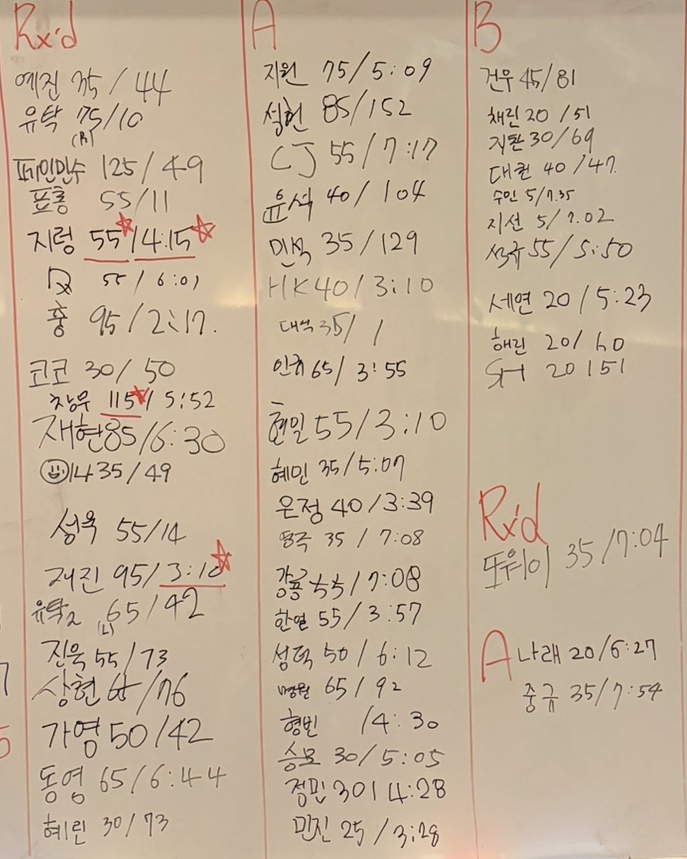 Rx'd
예진 35/44
유탁 75/10
(R)
페인만수 125/49
표홍 55/11
지렁 55/4:15
55/6:01
훙 95/2:17.
코코 30/50
창우 115/5:52
재현 85/6:30
14 35/49
성욱 55/14
재진 95/3:10
유탁2 65/42
(L)
진욱 55/73
상현 65/76
가영 50/42
동영 65/6:44
혜린 30/73
A
지원 75/5:09
석헌 85/152
CJ 55/7:17
윤석 40/104
민석 35/129
HK 40/3:10
대석 35/
인휘 65/3:55
현일 55/3:10
혜민 35/5:07
은정 40/3:39
용국 35/7:08
강룡 55/7:08
한열 55/3:57
성덕 50/6:12
65/92
형빈 /4:30
승모 30/5:05
정민 30/4:28
민진 25/3:28
B
건우 45/81
채린 20/51
지환 30/69
대원 40/47
수인 5/7.35
지선 5/7.02
석규 55/5:50
세연 20/5:23
해린 20/60
SH 20/51
Rx'd
또위이 35/7:04
A
나래 20/6:27
중규 35/7:54